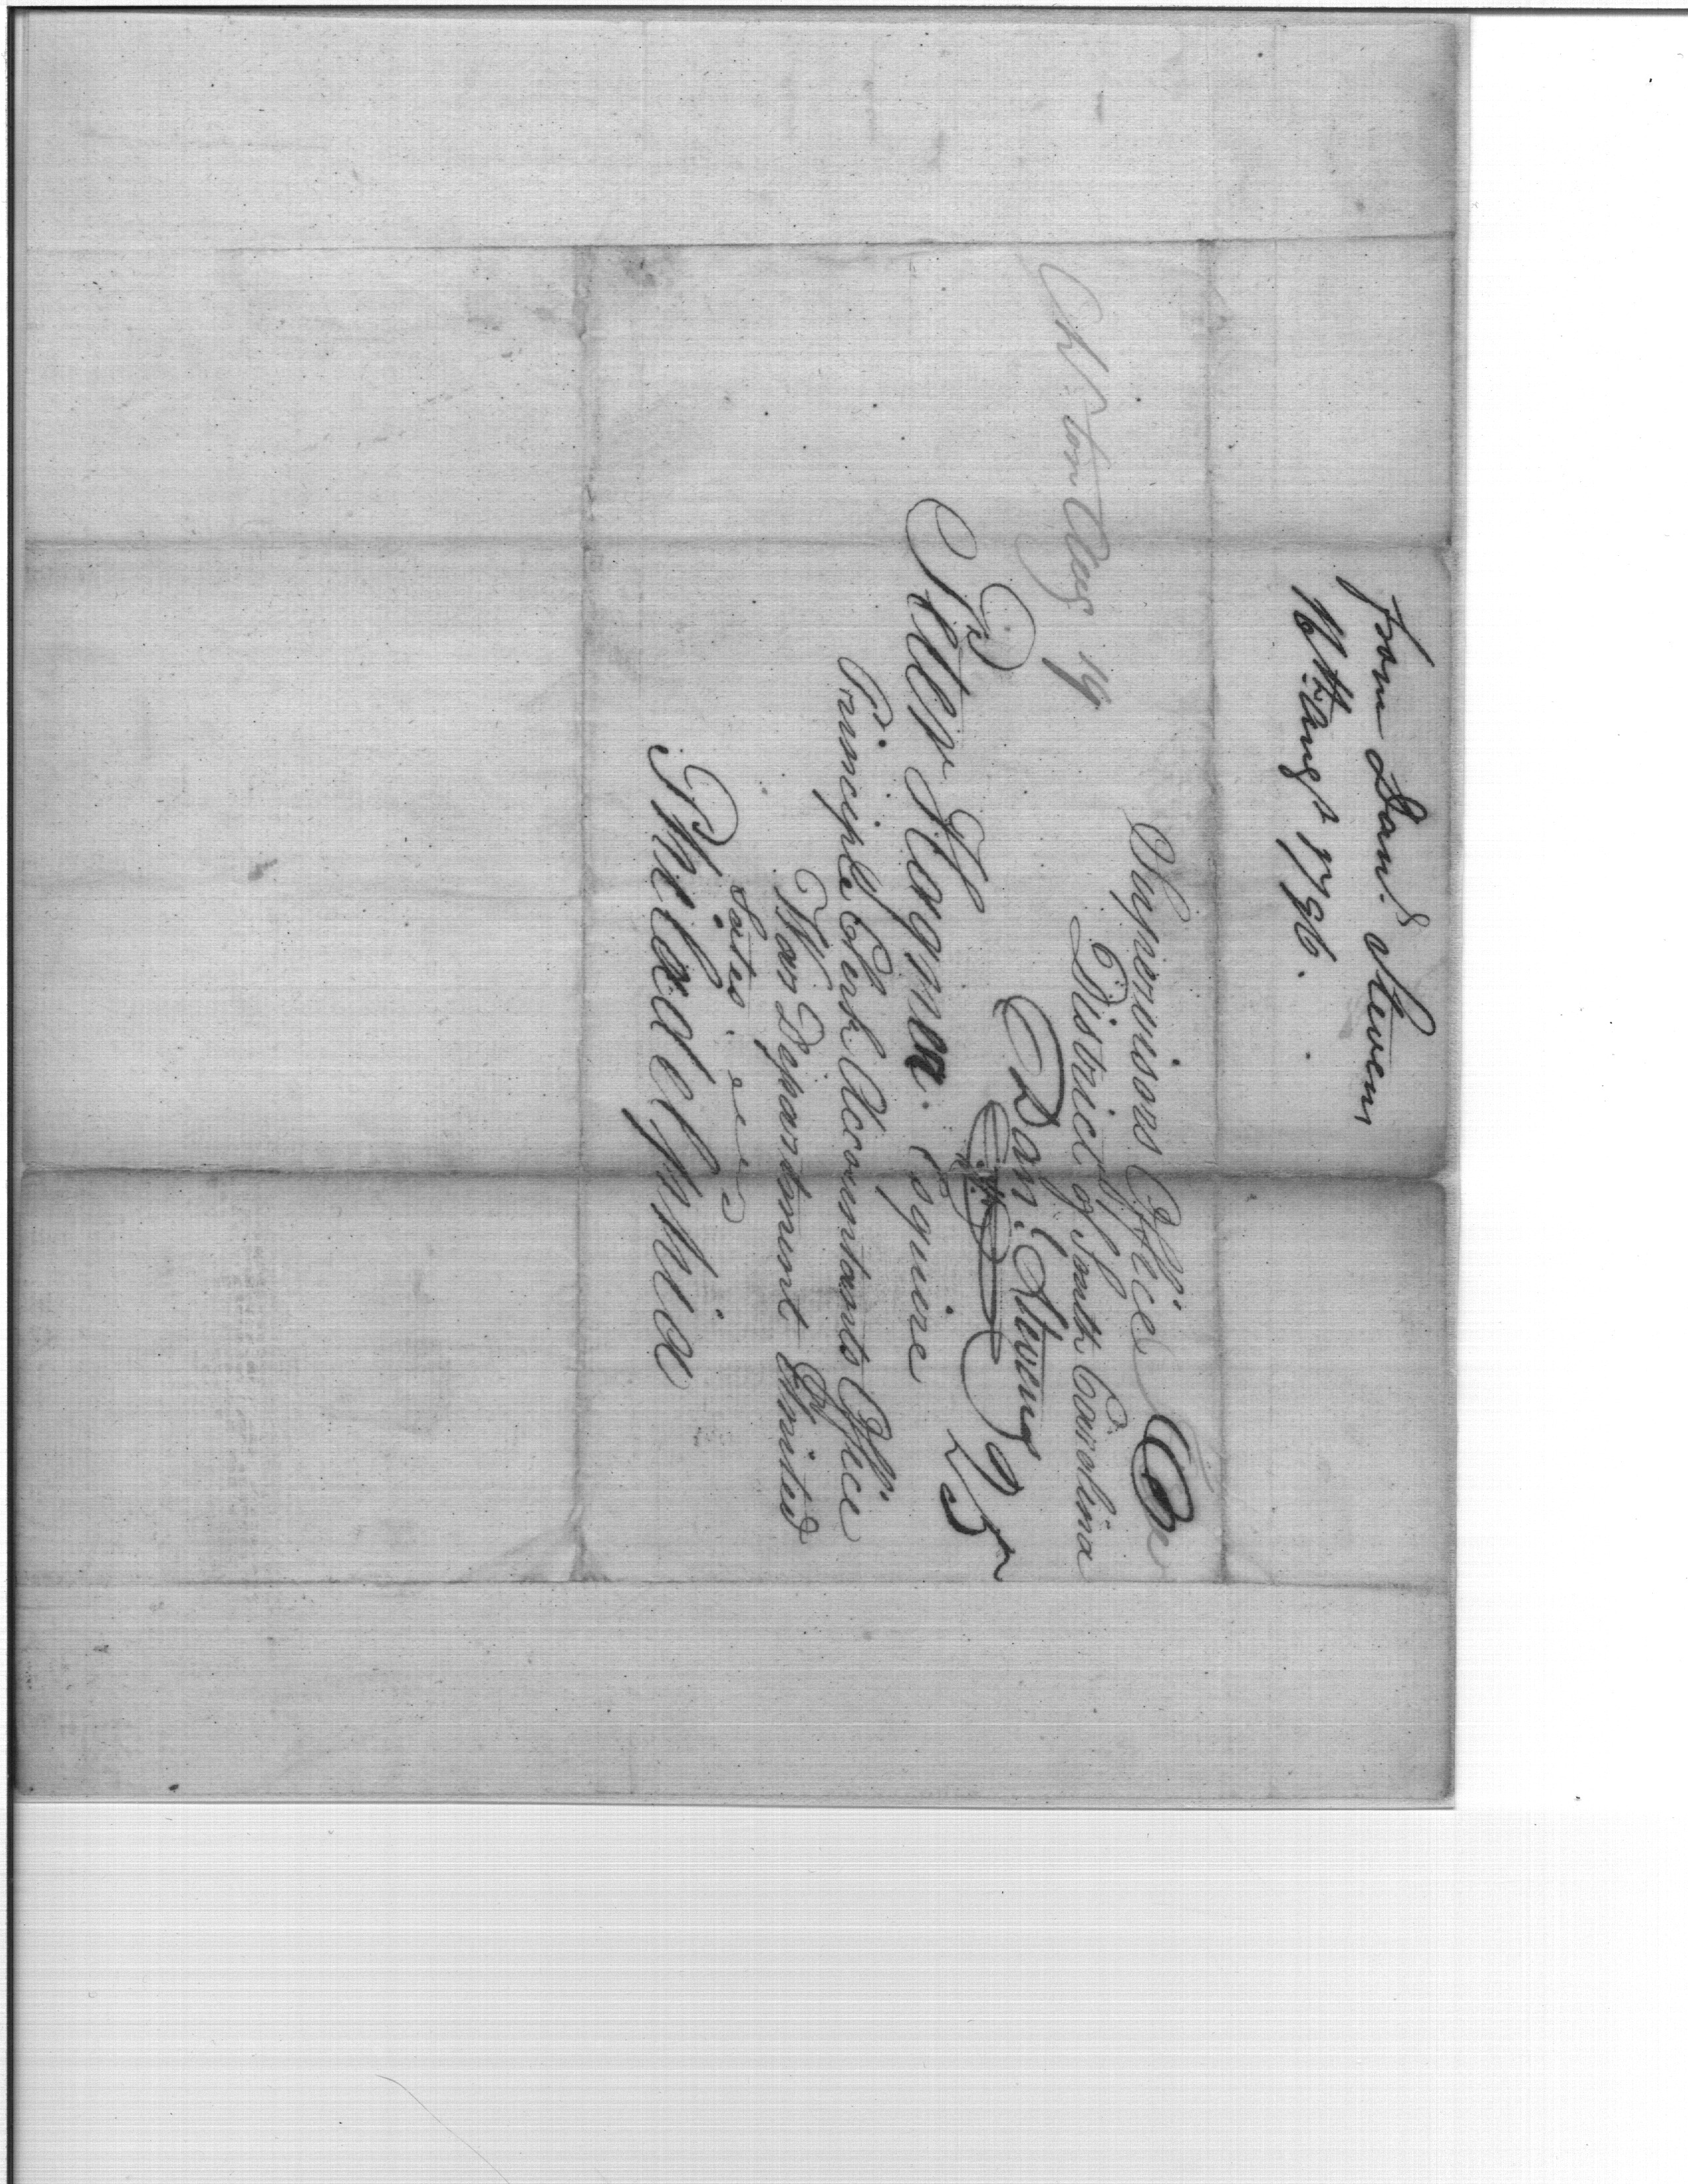 from Danl. Stevens
16th. Augst 1796.
Supervisors Office
District of South Carolina
Ch'ston Aug 19
Danl. Stevens
25
Peter Hagner. Esquire
Principle Clerk Accountants Office
War Department United
States.
Philadelphia